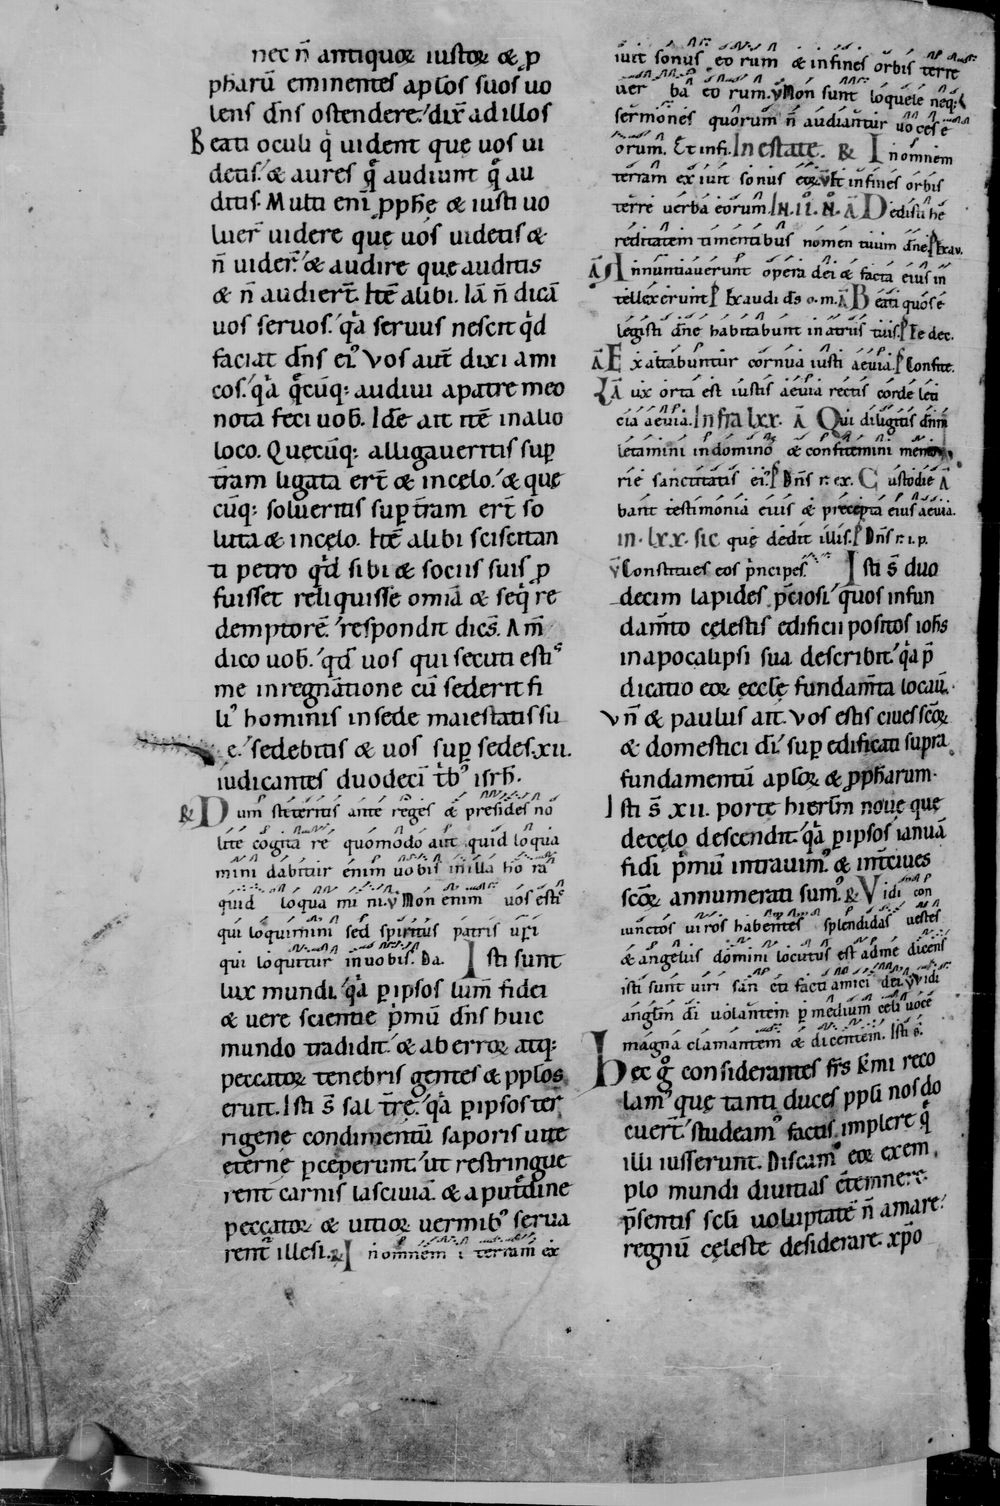 nec n̄ antiquoꝝ iustoꝝ & ꝓ
phaꝝ eminentes apłos suos uo
lens dn̄s ostendere. dix̄ ad illos
Beati oculi q̇ uident que uos ui
detis. & aures q̄ audiunt q̄ au
ditis. Multi eni ꝓph̄e & iusti uo
luer̄ uidere que uos uidetis &
n̄ uider̄. & audire que auditis
& n̄ audier̄t. Itē alibi. Iā n̄ dicā
uos seruos. q̇a seruus nescit q̇d
faciat dn̄s ei᾽. Vos aut̄ dixi ami
cos. q̇a q̄cūq; audiui a patre meo
nota feci uob̄. Idē ait itē in alio
loco. Quecūq; alligaueritis suꝑ
tr̄am ligata er̄t & in celo. & que
cūq; solueritis suꝑ tr̄am er̄t so
luta & in cęlo. Itē alibi sciscitan
ti petro q̇d sibi & sociis suis ꝓ
fuisset reliquisse omīa & seq̇ re
demptorē. respondit dicēs. Am̄
dico uob̄. qd̄ uos qui secuti esti᾽
me in regnātione cū sederit fi
li᾽ hominis in sede maiestatis su
e. sedebitis & uos suꝑ sedes. xii.
iudicantes duodecī trib᾽ isrł.
℟ Dum steteritis ante reges & presides no
lite cogita re quomodo aut quid loqua
mini dabitur enim uobis in illa ho ra
quid loqua mi ni. ℣ Non enim uos esti᾽
qui loquimini sed spiritus patris ur̄i
qui loquitur in uobis. Da. Isti sunt
lux mundi. q̇a ꝑ ipsos lum̄ fidei
& uere scientie p̄mū dn̄s huic
mundo tradidit. & ab erroꝝ atq;
peccatoꝝ tenebris gentes & pplos
eruit. Isti s̄ sal tr̄re. q̇a ꝑ ipsos ter
rigene condimentū saporis uite
eterne ꝑceperunt. ut restringue
rent carnis lasciuiā. & a putdine
peccatoꝝ & uitioꝝ uermib᾽ serua
rent᾽ illesi. ℟ In omnem terram ex
iuit sonus eo rum & in fines orbis terre
uer ba eo rum. ℣ Non sunt loquele neq;
sermones quorum n̄ audiantur uoces e
orum. Et in fi. In estate. ℟ In omnem
terram ex iuit sonus eoꝝ. ℣ Et in fines orbis
terre uerba eorum. In. ii. N. Ā Dedisti he
reditatem timentibus nomen tuum dn̄e. Ps̄ Exau.
Ā Annuntiauerunt opera dei & facta eius in
tellexerunt. Ps̄ Exaudi ds̄ o. m. Ā Beati quos e
legisti dn̄e habitabunt in atriis tuis. Ps̄ Te dec.
Ā Exaltabuntur cornua iusti aeuia. Ps̄ Confite.
Ā Lux orta est iustis aeuia rectis corde leti
cia aeuia. Infra lxx. Ā Qui diligitis dn̄m
letamini in domino & confitemini memo
rie sanctitatis ei᾽. Ps̄ Dn̄s r. ex. Custodie Ā
bant testimonia eius & precepta eius aeuia.
in. lxx. sic que dedit illis. Ps̄ Dn̄s r. i. p.
℣ Constitues eos p̄ncipes. Isti s̄ duo
decim lapides p̄ciosi quos in fun
dam̄to cęlestis edificii positos ioh̄s
in apocalipsi sua describit. q̇a p̄
dicatio eoꝝ ęccłę fundam̄ta locau̅.
Vn̄ & paulus ait. Vos estis ciues scōꝝ
& domestici di̅. suꝑ edificati supra
fundamentū apłoꝝ & ꝓph̄arum.
Isti s̄ xii. porte hierłm noue que
de cęlo descendit. q̇a ꝑ ipsos ianuā
fidi̅ p̄mū intrauim᾽. & int̄ ciues
scōꝝ annumerati sum᾽. ℟ Vidi con
iunctos uiros habentes splendidas uestes
& angelus domini locutus est ad me dicens
isti sunt uiri san cti facti amici dei. ℣ Vidi
angłm di̅ uolantem ꝑ medium celi uoce
magna clamantem & dicentem. Isti s̄.
Hęc g̊ considerantes fr̄s km̄i reco
lam᾽ que tanti duces ppłi nos do
cuer̄t. studeam᾽ factis implere q̄
illi iusserunt. Discam᾽ eoꝝ exem
plo mundi diuitias c̄temnere.
p̄sentis scłi uoluptatē n̄ amare.
regnū cęleste desiderare. xp̄o